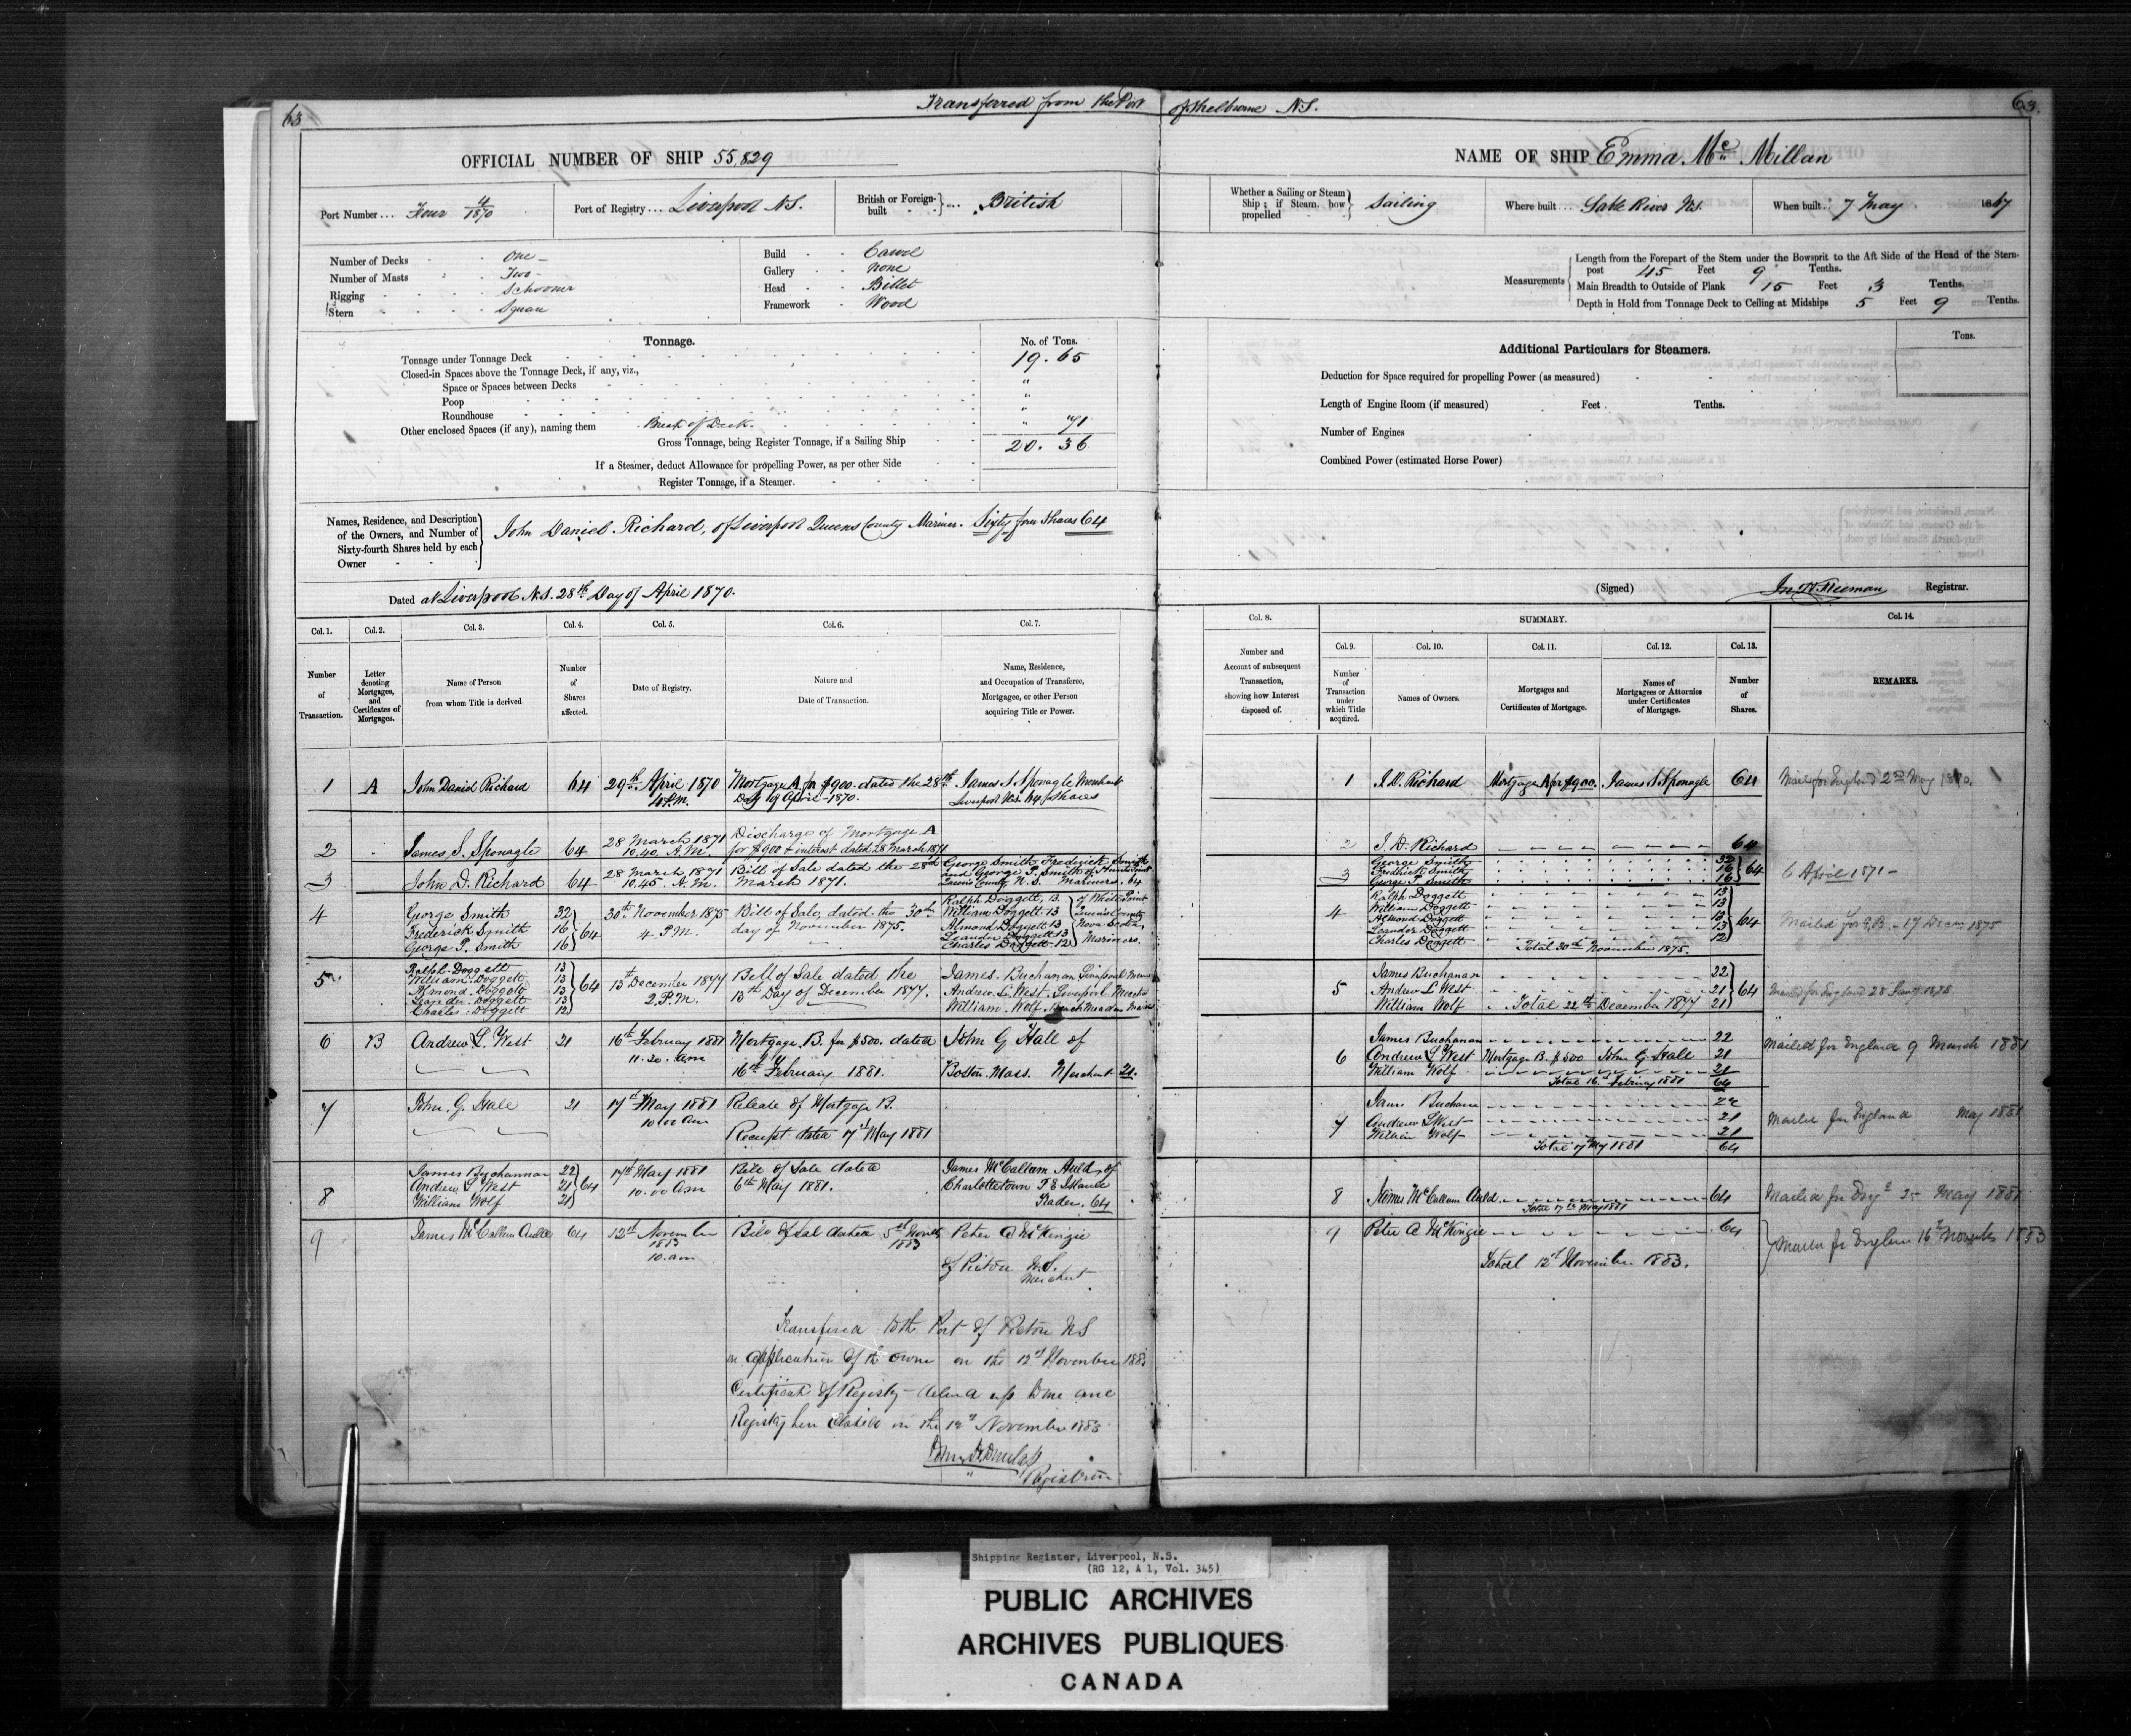 63
Transferred from the Port of Shelburne N.S.
63.
OFFICIAL NUMBER OF SHIP 55,829
Port Number... Four 4/1870
Port of Registry... Liverpool N.S.
British or Foreign-built } ... British
Number of Decks One
Number of Masts Two
Rigging Schooner
Stern Square
Build Carvel
Gallery None
Head Billet
Framework Wood
Tonnage.
No. of Tons.
Tonnage under Tonnage Deck 19.65
Closed-in Spaces above the Tonnage Deck, if any, viz.,
Space or Spaces between Decks "
Poop "
Roundhouse "
Other enclosed Spaces (if any), naming them Break of Deck. " 71
Gross Tonnage, being Register Tonnage, if a Sailing Ship 20.36
If a Steamer, deduct Allowance for propelling Power, as per other Side
Register Tonnage, if a Steamer.
Names, Residence, and Description
of the Owners, and Number of
Sixty-fourth Shares held by each
Owner
John Daniel Richard, of Liverpool Queens County Mariner. Sixty four Shares 64
Dated at Liverpool N.S. 28th Day of April 1870.
NAME OF SHIP Emma Mc Millan
Whether a Sailing or Steam
Ship; if Steam, how
propelled
Sailing
Where built... Sable River N.S.
When built. 7 May 1867
Measurements
Length from the Forepart of the Stem under the Bowsprit to the Aft Side of the Head of the Stern-
post 45 Feet 9 Tenths.
Main Breadth to Outside of Plank 15 Feet 3 Tenths.
Depth in Hold from Tonnage Deck to Ceiling at Midships 5 Feet 9 Tenths.
Additional Particulars for Steamers.
Tons.
Deduction for Space required for propelling Power (as measured)
Length of Engine Room (if measured) Feet. Tenths.
Number of Engines
Combined Power (estimated Horse Power)
(Signed) Registrar.
Col. 1. Col. 2. Col. 3. Col. 4. Col. 5. Col. 6. Col. 7.
Number of Transaction.
Letter denoting Mortgages, and Certificates of Mortgages.
Name of Person from whom Title is derived
Number of Shares affected.
Date of Registry.
Nature and Date of Transaction.
Name, Residence, and Occupation of Transferee, Mortgagee, or other Person acquiring Title or Power.
1 A John Daniel Richard 64 29th April 1870 4 P.M. Mortgage A for $900. dated the 28th Day of April 1870. James S. Sponagle Merchant Liverpool N.S. 64 Shares
2 James S. Sponagle 64 28 March 1871 10.40. A.M. Discharge of Mortgage A for $900 & interest dated 28 March 1871
3 John D. Richard 64 28 March 1871 10.45. A.M. Bill of Sale dated the 28th March 1871. George Smith Frederick Smith and George P. Smith of Queens County N.S. Mariners. 64
4 George Smith 32 Frederick Smith 16 George P. Smith 16 } 64 30th November 1875 4 P.M. Bill of Sale, dated the 30th day of November 1875. Ralph Doggett, 13 William Doggett 13 Almond Doggett 13 Leander Doggett 13 Charles Doggett 12 } of White Point Queens County Nova Scotia, Mariners.
5 Ralph Doggett 13 William Doggett 13 Almond Doggett 13 Leander Doggett 13 Charles Doggett 12 } 64 13th December 1877 2 P.M. Bill of Sale dated the 13th Day of December 1877. James Buchanan Liverpool Andrew L. West. Liverpool William Wolf
6 B Andrew L. West 21 16th February 1881 11.30. am Mortgage B. for $500. dated 16th February 1881. John G Hall of Boston Mass. Merchant 21.
7 John. G. Hall 21 17th May 1881 10.00 am Release of Mortgage B. Receipt dated 7th May 1881
8 James Buchannan 22 Andrew L West 21 William Wolf 21 } 64 17th May 1881 10.00 am Bill of Sale dated 6th May 1881. James McCallum Auld, of Charlottetown P E Island Trader. 64
9 James McCallum Auld 64 12th November 1883 10. am Bill of Sal dated 5th Novr 1883 Peter A McKinzie of Pictou N.S. Merchant
Transferred to the Port of Pictou NS
on application of the owner on the 12th November 1883
Certificate of Registry delivered up to me and
Registry here closed on the 12th November 1883
Registrar
Col. 8.
Number and Account of subsequent Transaction, showing how Interest disposed of.
SUMMARY.
Col. 9. Col. 10. Col. 11. Col. 12. Col. 13. Col. 14.
Number of Transaction under which Title acquired.
Names of Owners.
Mortgages and Certificates of Mortgage.
Names of Mortgagees or Attornies under Certificates of Mortgage.
Number of Shares.
REMARKS.
1 J. D. Richard Mortgage A for $900. James S. Sponagle 64 Mail for England 2nd May 1870.
2 J. D. Richard 64
3 George Smith 32 Fredrick Smith 16 George P Smith 16 } 64 6 April 1871
4 Ralph Doggett 13 William Doggett 13 Almond Doggett 13 Leander Doggett 13 Charles Doggett 12 } 64 Total 30th November 1875. Mailed for G.B. 17 Decem 1875
5 James Buchanan 22 Andrew L West 21 William Wolf 21 } 64 Total 22nd December 1877 Mailed for England 28 Jany 1878
6 James Buchanan 22 Andrew L West Mortgage B. $500 John G Hall 21 William Wolf 21 Total 16th February 1881 64 Mailed for England 9 March 1881
7 James Buchanan 22 Andrew L West 21 William Wolf 21 Total 17th May 1881 64 Mailed for England May 1881
8 James McCallum Auld 64 Total 17th May 1881 Mailed for Engd 25 May 1881
9 Peter A McKinzie 64 Total 12th November 1883. Mailed for England 16th November 1883
Shipping Register, Liverpool, N.S.
(RG 12, A 1, Vol. 345)
PUBLIC ARCHIVES
ARCHIVES PUBLIQUES
CANADA